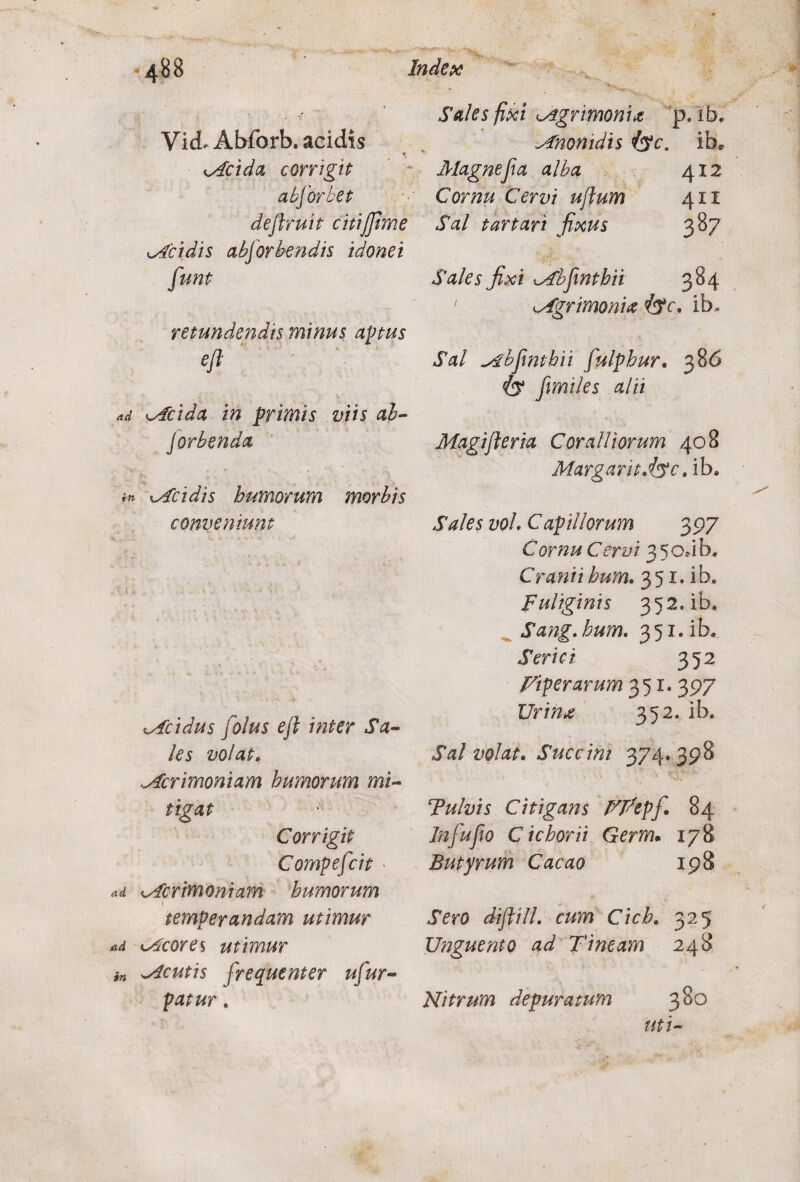 488 Index
Vid. Abſorb. acidis
Acida corrigit
abſorbet
deſtruit citiſſime
Acidis abſorbendis idonei
ſunt
retundendis minus aptus
eſt
ad Acida in primis viis ab-
ſorbenda
in Acidis humorum morbis
conveniunt
Acidus ſolus eſt inter Sa-
les volat.
Acrimoniam humorum mi-
tigat
Corrigit
Compeſcit
ad Acrimoniam humorum
temperandam utimur
ad Acores utimur
in Acutis frequenter uſur-
patur.
Sales fixi Agrimoniæ p. ib.
Anonidis &c. ib.
Magneſia alba 412
Cornu Cervi uſtum 411
Sal tartari fixus 387
Sales fixi Abſinthii 384
Agrimoniæ &c. ib.
Sal Abſinthii ſulphur. 386
& ſimiles alii
Magiſteria Coralliorum 408
Margarit.&c. ib.
Sales vol. Capillorum 397
Cornu Cervi 350.ib.
Cranii hum. 351. ib.
Fuliginis 352. ib.
Sang. hum. 351. ib.
Serici 352
Viperarum 351. 397
Urinæ 352. ib.
Sal volat. Succini 374. 398
Pulvis Citigans Wepf. 84
Infuſio Cichorii Germ. 178
Butyrum Cacao 198
Sero diſtill. cum Cich. 325
Unguento ad Tineam 248
Nitrum depuratum 380
uti-